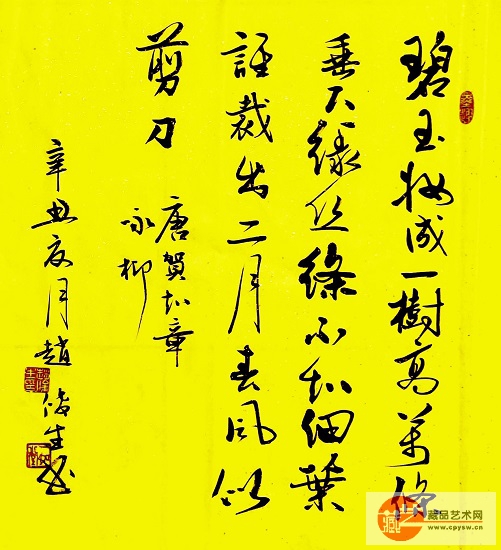 碧玉妝成一樹高萬條
垂下綠絲絛不知細葉
誰裁出二月春風似
剪刀
唐賀知章
咏柳
辛丑夏月趙生書
藏品艺术网
www.cpysw.cn